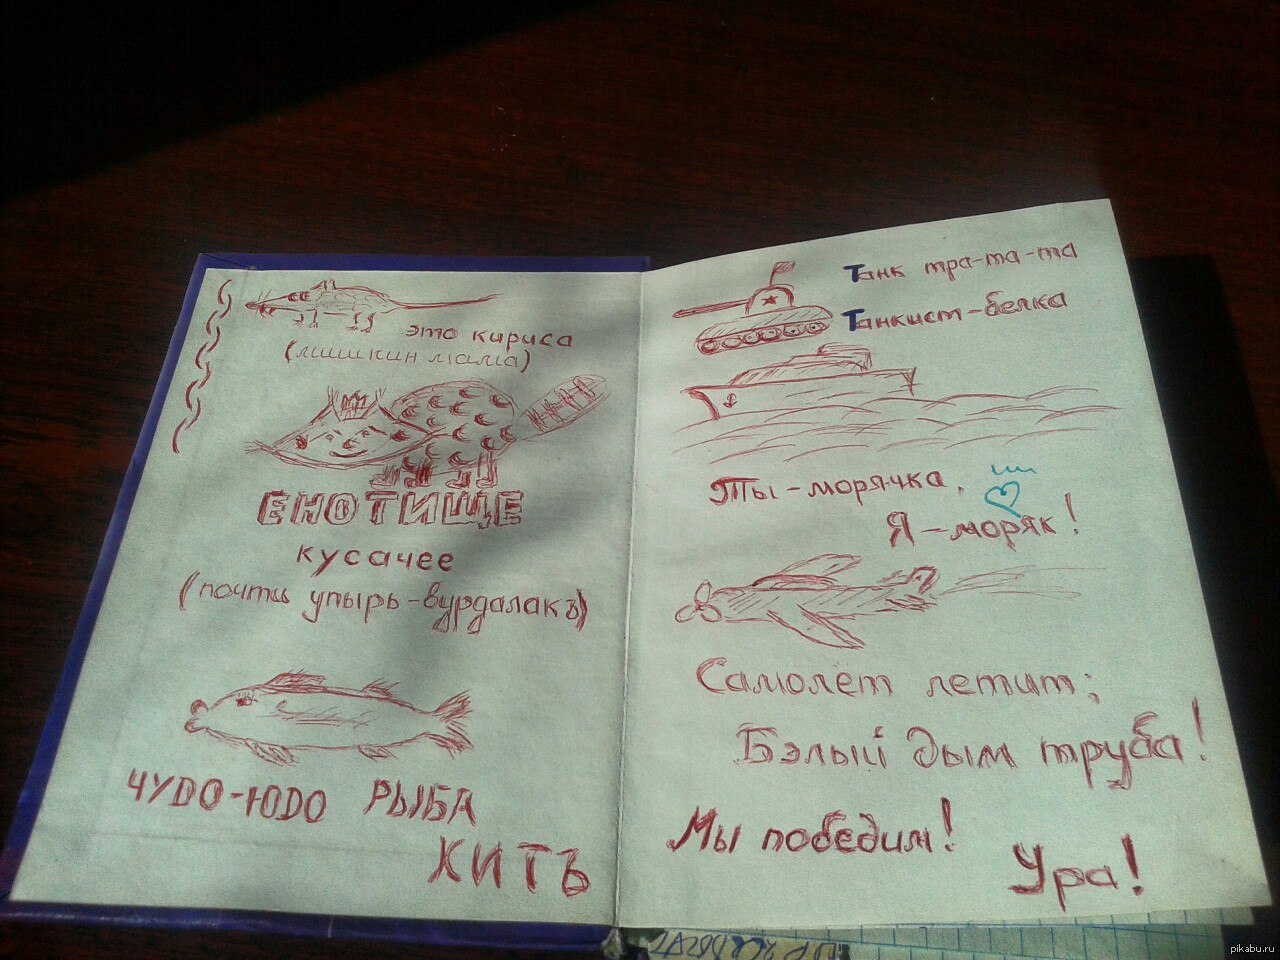 это кириса
(мишкин мама)
ЕНОТИЩЕ
кусачее
(почти упырь-вурдалакъ)
ЧУДО-ЮДО РЫБА
КИТЪ
Танк тра-та-та
Танкист-белка
Ты-морячка,
Я-моряк!
Самолёт летит;
Бэлый дым труба!
Мы победим!
Ура!
pikabu.ru